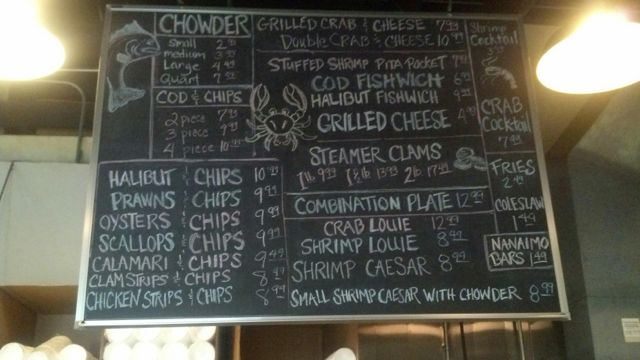 CHOWDER
Small
medium
Large
Quart
COD & CHIPS
2 piece 7.99
3 piece 9.99
4 piece
HALIBUT & CHIPS 10.99
PRAWNS & CHIPS 9.99
OYSTERS & CHIPS 9.99
SCALLOPS & CHIPS 9.99
CALAMARI & CHIPS 9.49
CLAM STRIPS & CHIPS 8.99
CHICKEN STRIPS & CHIPS 8.99
GRILLED CRAB & CHEESE 7.99
DOUBLE CRAB & CHEESE
STUFFED SHRIMP PITA POCKET
COD FISHWICH
HALIBUT FISHWICH
GRILLED CHEESE
STEAMER CLAMS
1 lb 9.99 1 1/2 lb 13.99 2 lb 17.49
COMBINATION PLATE 12.99
CRAB LOUIE 12.99
SHRIMP LOUIE 8.99
SHRIMP CAESAR 8.99
SMALL SHRIMP CAESAR WITH CHOWDER 8.99
Shrimp
Cocktail
CRAB
Cocktail
7.99
FRIES
2.49
COLESLAW
1.49
NANAIMO
BARS 1.49